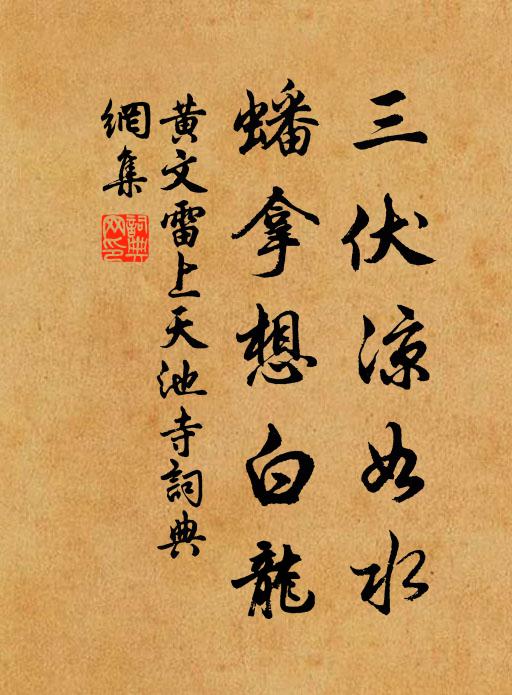 三伏涼如水
蟠拿想白龍
黃文雷上天池寺詞典
網集
詞典網印